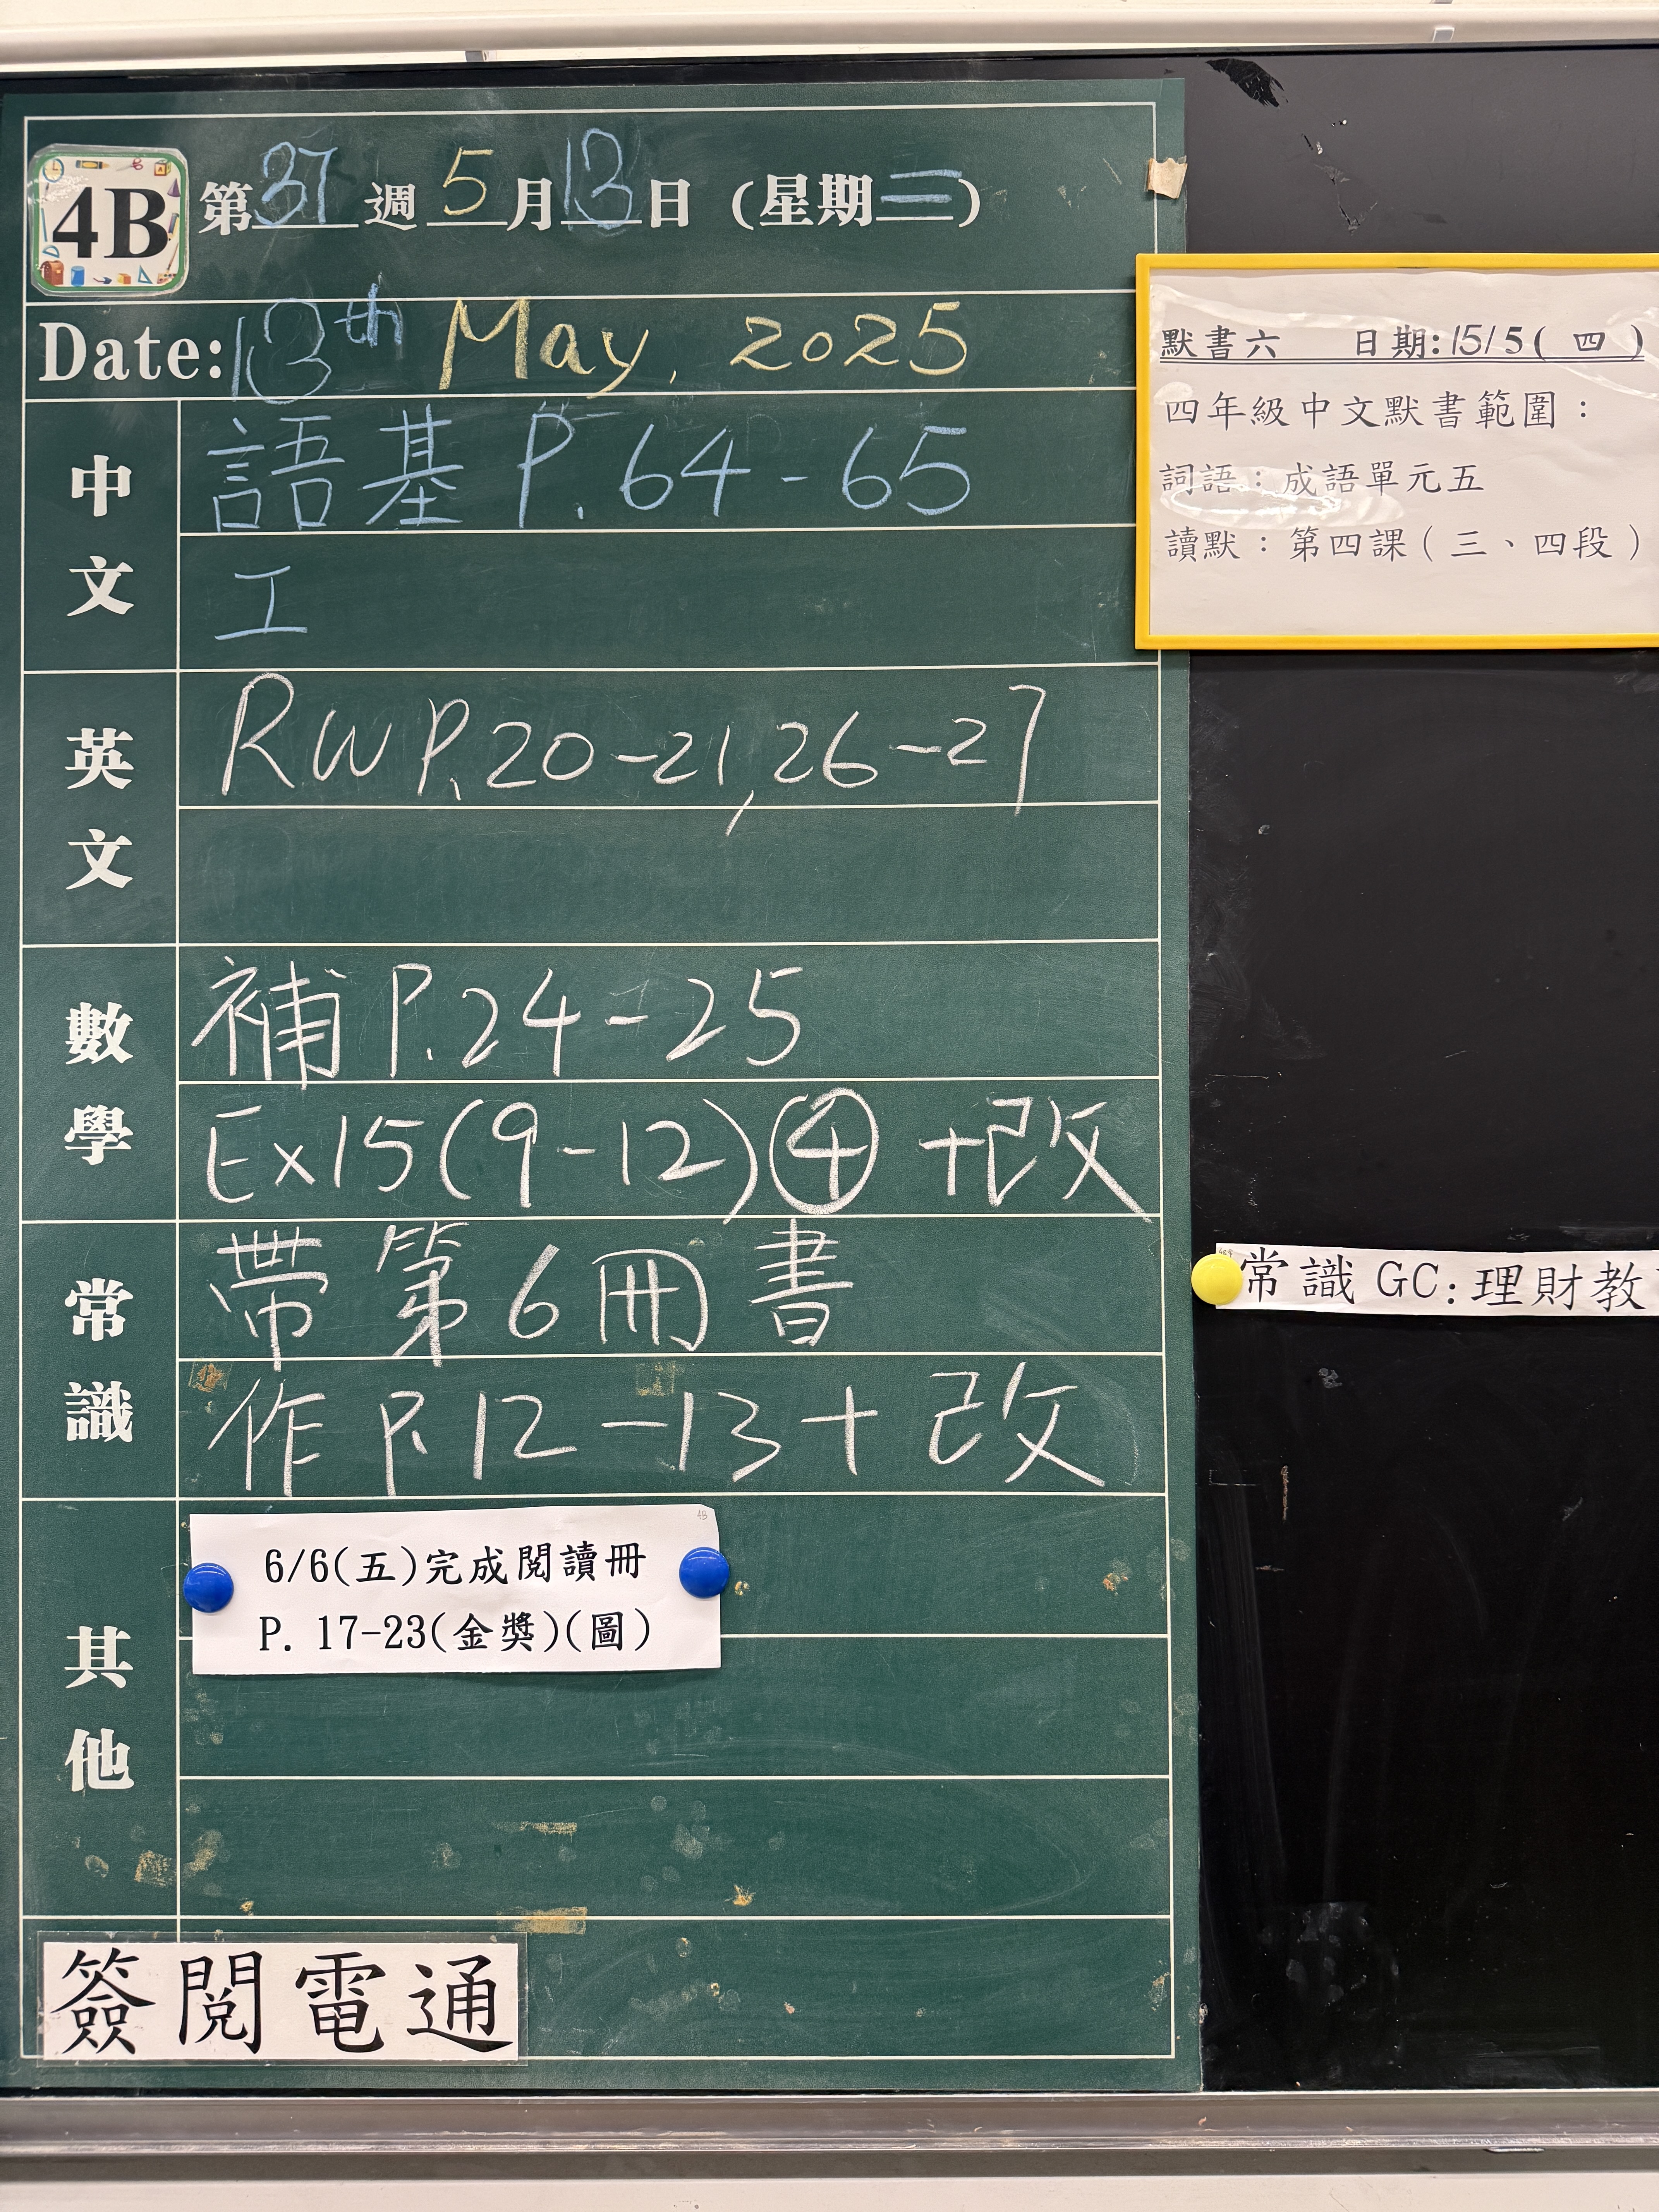 4B 第37週5月13日(星期二)
Date: 13th May, 2025
中文
語基 P.64-65
工
英文
RW P.20-21, 26-27
數學
補 P.24-25
Ex15(9-12)④ +改
常識
帶第6冊書
作 P.12-13+改
其他
4B
6/6(五)完成閱讀冊
P. 17-23(金獎)(圖)
簽閱電通
默書六 日期:15/5(四)
四年級中文默書範圍：
詞語：成語單元五
讀默：第四課(三、四段)
常識 GC:理財教